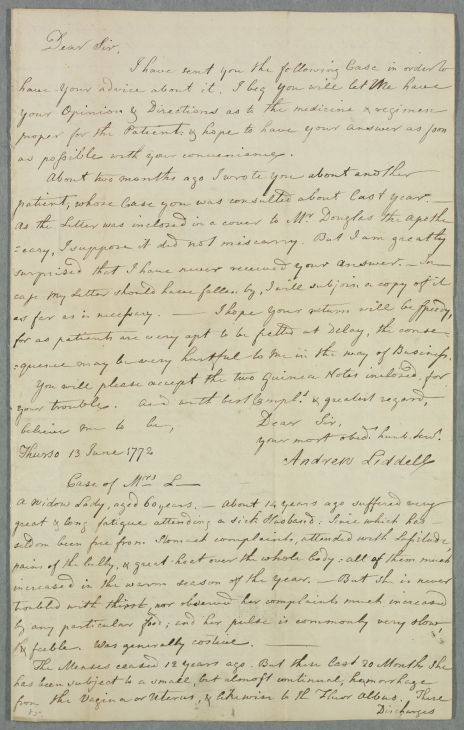 Dear Sir,
I have sent you the following Case in order to
have your advice about it. I beg you will let me have
your Opinion & Directions as to the medicine & regimen
proper for the Patient; & hope to have your answer as soon
as possible with your conveniency.
About two months ago I wrote you about another
patient, whose Case you was consulted about last year. —
As the Letter was inclosed in a cover to Mr. Douglas the Apothe
=cary, I suppose it did not miscarry. But I am greatly
surprised that I have never received your answer. — In
case my Letter should have fallen by, I will subjoin a copy of it
as far as is necessary. — I hope your return will be speedy,
for as patients are very apt to be fretted at delay, the conse-
-quence may be very hurtful to me in the way of Business.
You will please accept the two Guinea Notes inclosed, for
your trouble. And with best Complts. & greatest regard,
believe me to be,
Dear Sir,
your most obedt. humb. servt.
Thurso 13 June 1772
Andrew Liddell
Case of Mrs L—
A Widow Lady, aged 60 years. — About 14 years ago suffered very
great & long fatigue attending a sick Husband: Since which has
seldom been free from Stomach complaints, attended with Lassitude,
pains of the belly, & great heat over the whole body: all of them much
increased in the warm season of the year. — But she is never
troubled with thirst, nor observed her complaints much increased
by any particular food; and her pulse is commonly very slow
& feeble. Was generally costive.
The Menses ceased 12 years ago. But these last 20 Months she
has been subject to a small, but almost continual, hemorrhage
from the Vagina or Uterus, & likewise to the Fluor Albus. These
Discharges